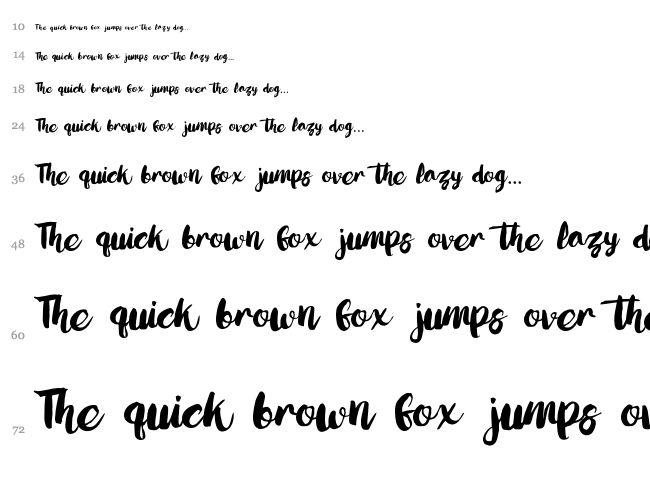 10 The quick brown fox jumps over the lazy dog...
14 The quick brown fox jumps over the lazy dog...
18 The quick brown fox jumps over the lazy dog...
24 The quick brown fox jumps over the lazy dog...
36 The quick brown fox jumps over the lazy dog...
48 The quick brown fox jumps over the lazy d
60 The quick brown fox jumps over the
72 The quick brown fox jumps ov